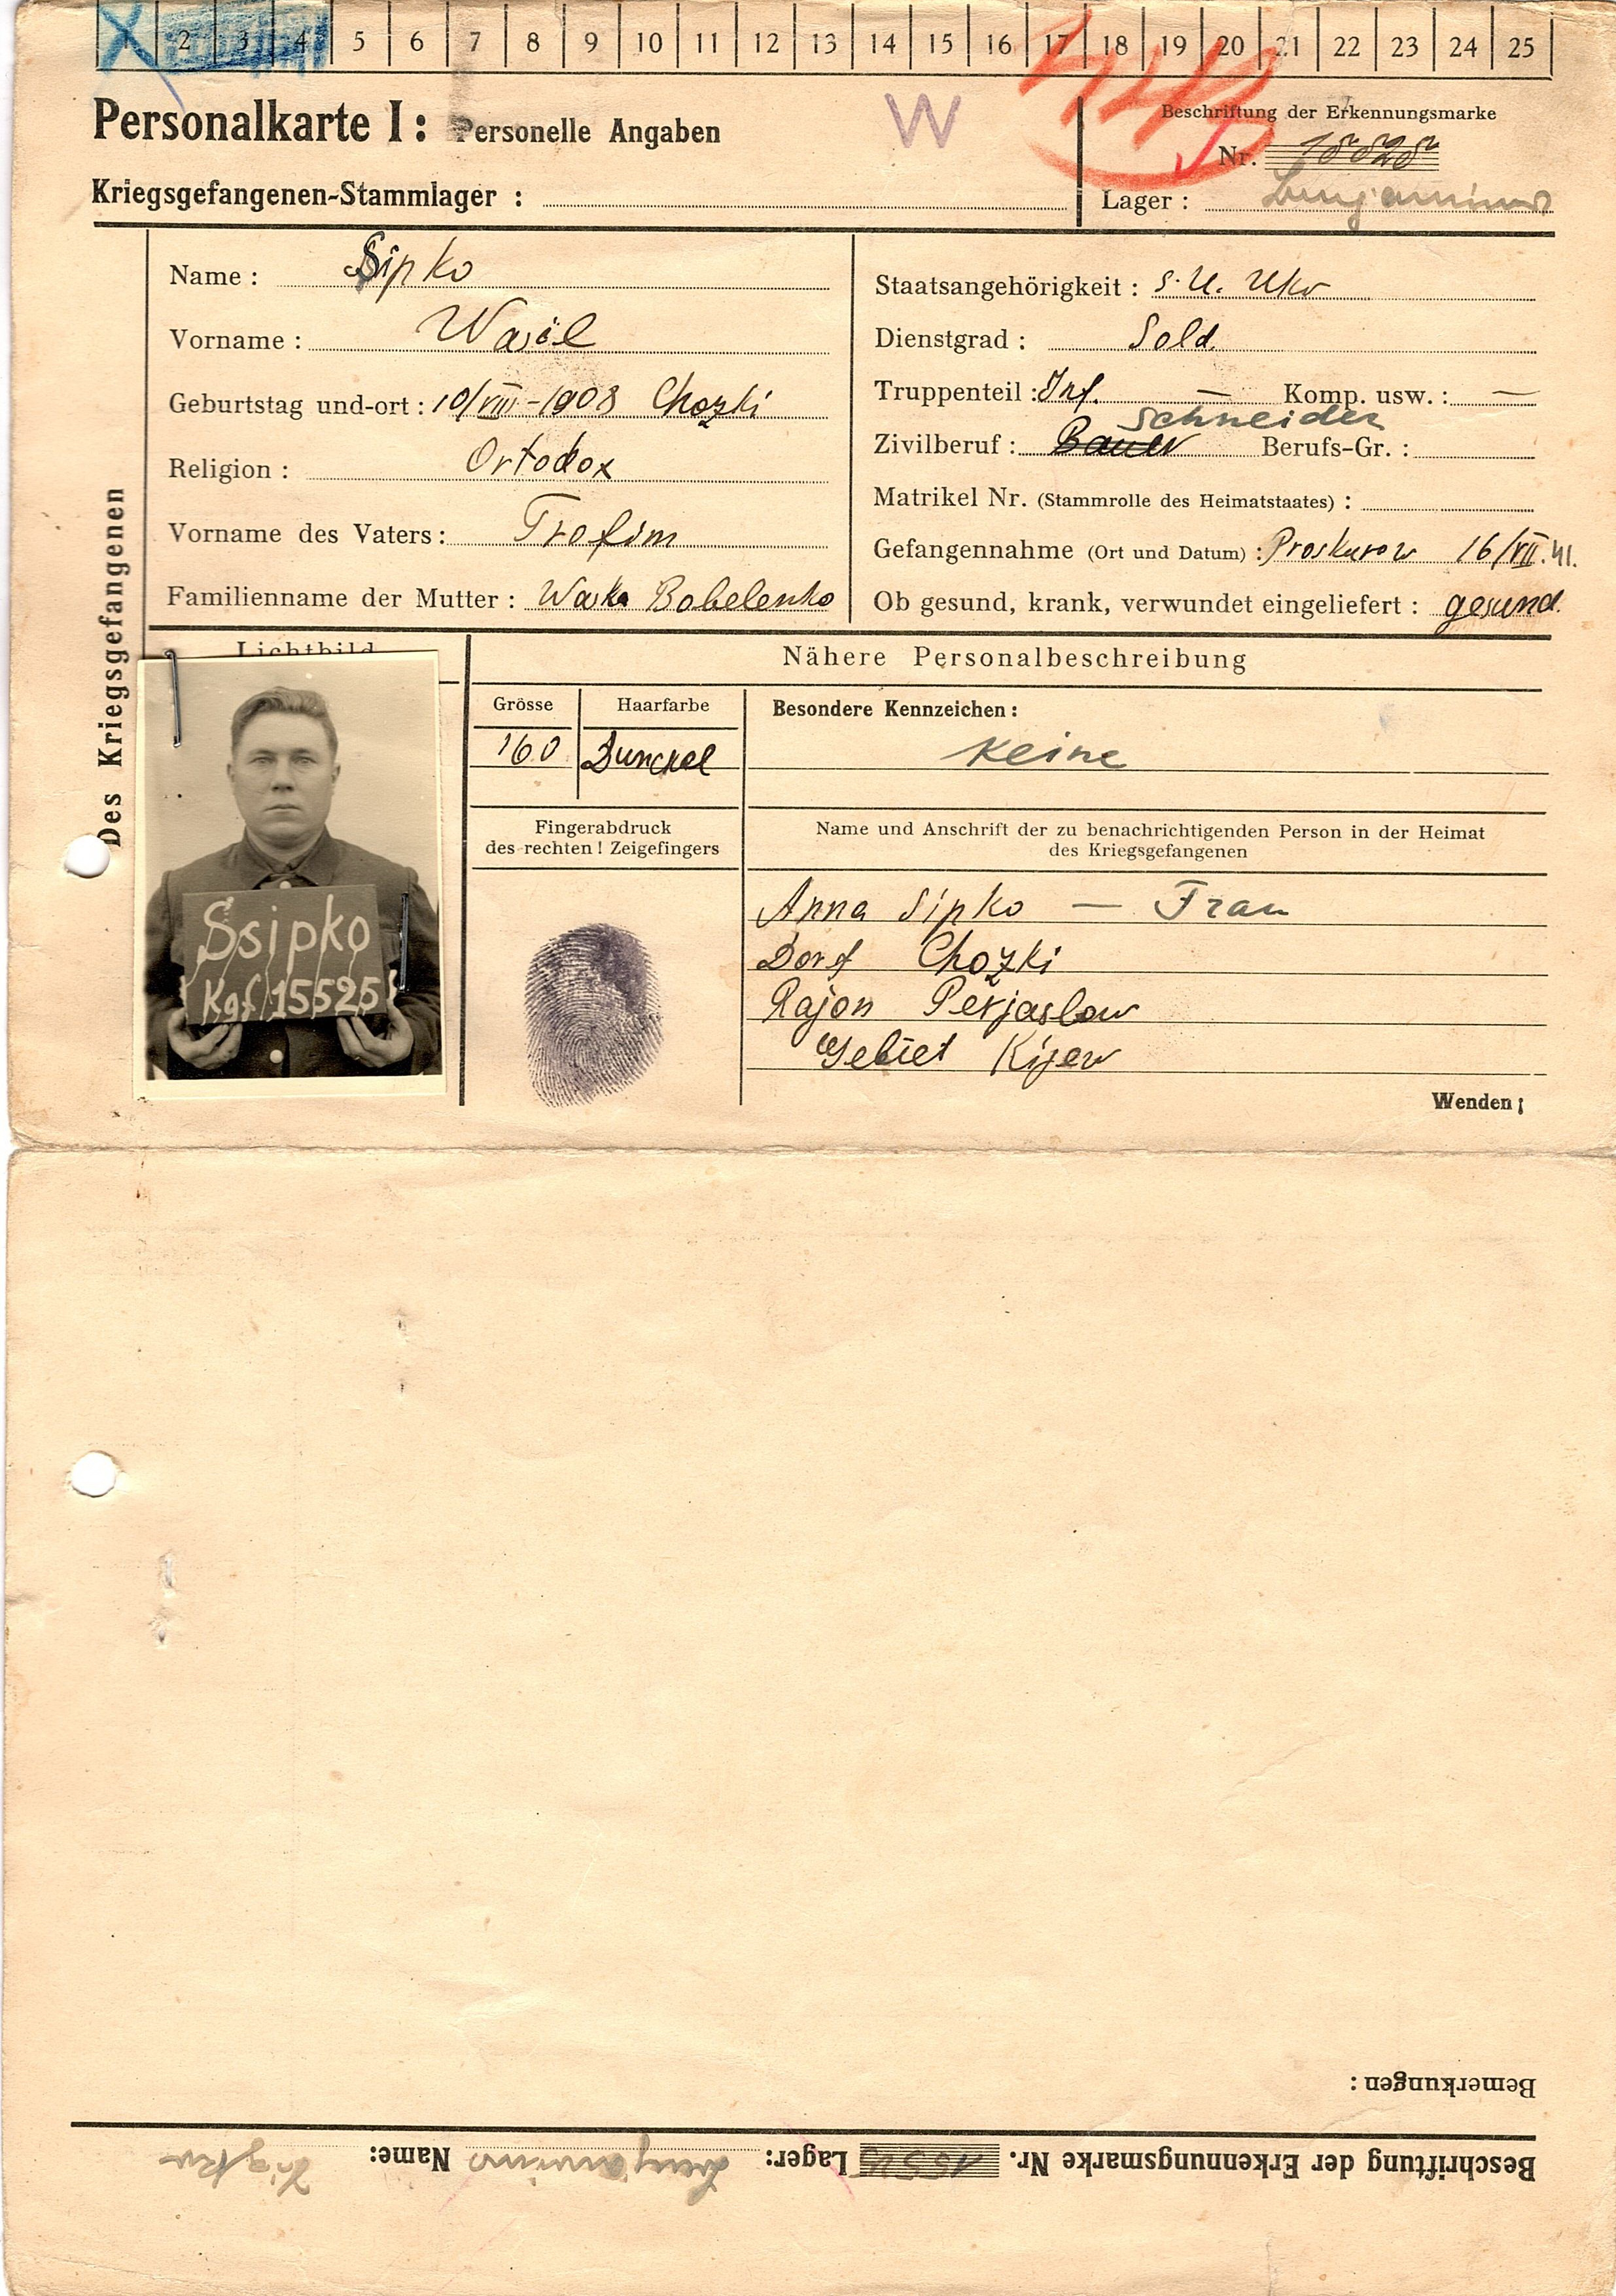 X 2 3 4 5 6 7 8 9 10 11 12 13 14 15 16 17 18 19 20 21 22 23 24 25
Personalkarte I: Personelle Angaben
W
Beschriftung der Erkennungsmarke
Nr.
Kriegsgefangenen-Stammlager :
Lager :
Des Kriegsgefangenen
Name : Sipko
Vorname : Wasil
Geburtstag und-ort : 10/VIII-1908 Chozki
Religion : Ortodox
Vorname des Vaters: Trofim
Familienname der Mutter : Waska Bobelenko
Staatsangehörigkeit : S.U. Ukr
Dienstgrad : Sold.
Truppenteil : Inf. — Komp. usw. : —
Schneider
Zivilberuf : Bauer Berufs-Gr. :
Matrikel Nr. (Stammrolle des Heimatstaates) :
Gefangennahme (Ort und Datum) : Proskurow 16/VII.41.
Ob gesund, krank, verwundet eingeliefert : gesund.
Lichtbild
Ssipko
Kgf 15525
Nähere Personalbeschreibung
Grösse
160
Haarfarbe
Dunckel
Besondere Kennzeichen :
Keine
Fingerabdruck
des rechten ! Zeigefingers
Name und Anschrift der zu benachrichtigenden Person in der Heimat
des Kriegsgefangenen
Anna Sipko — Frau
Dorf Chozki
Rajon Perjaslow
Gebiet Kijew
Wenden ;
Bemerkungen :
Beschriftung der Erkennungsmarke Nr. 15525 Lager: Name: Sipko